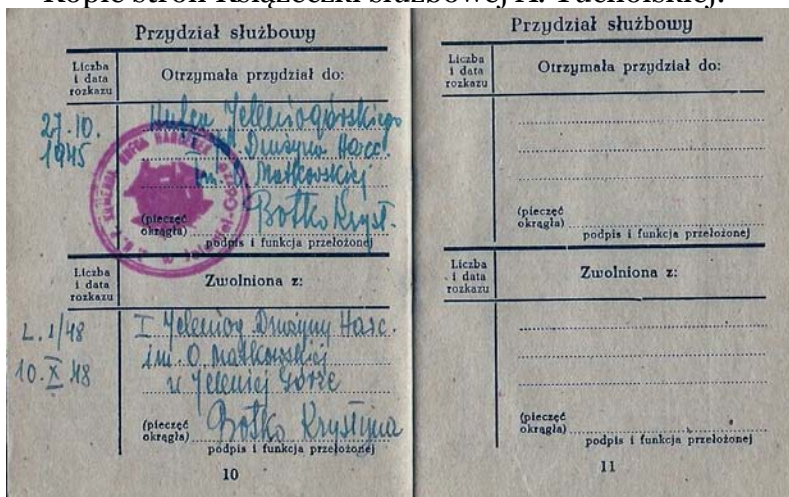 Kopie stron Książeczki służbowej A. Tucholskiej.
Przydział służbowy
Liczba i data rozkazu
Otrzymała przydział do:
27.10.1945
Hufca Jeleniogórskiego
Drużyna Harc.
im. O. Małkowskiej
(pieczęć okrągła)
Bottko Kryst.
podpis i funkcja przełożonej
Liczba i data rozkazu
Zwolniona z:
L. 1/48
10.X 48
I Jeleniog. Drużyny Harc.
im. O. Małkowskiej
w Jeleniej Górze
(pieczęć okrągła)
Bottko Krystyna
podpis i funkcja przełożonej
10
Przydział służbowy
Liczba i data rozkazu
Otrzymała przydział do:
(pieczęć okrągła)
podpis i funkcja przełożonej
Liczba i data rozkazu
Zwolniona z:
(pieczęć okrągła)
podpis i funkcja przełożonej
11